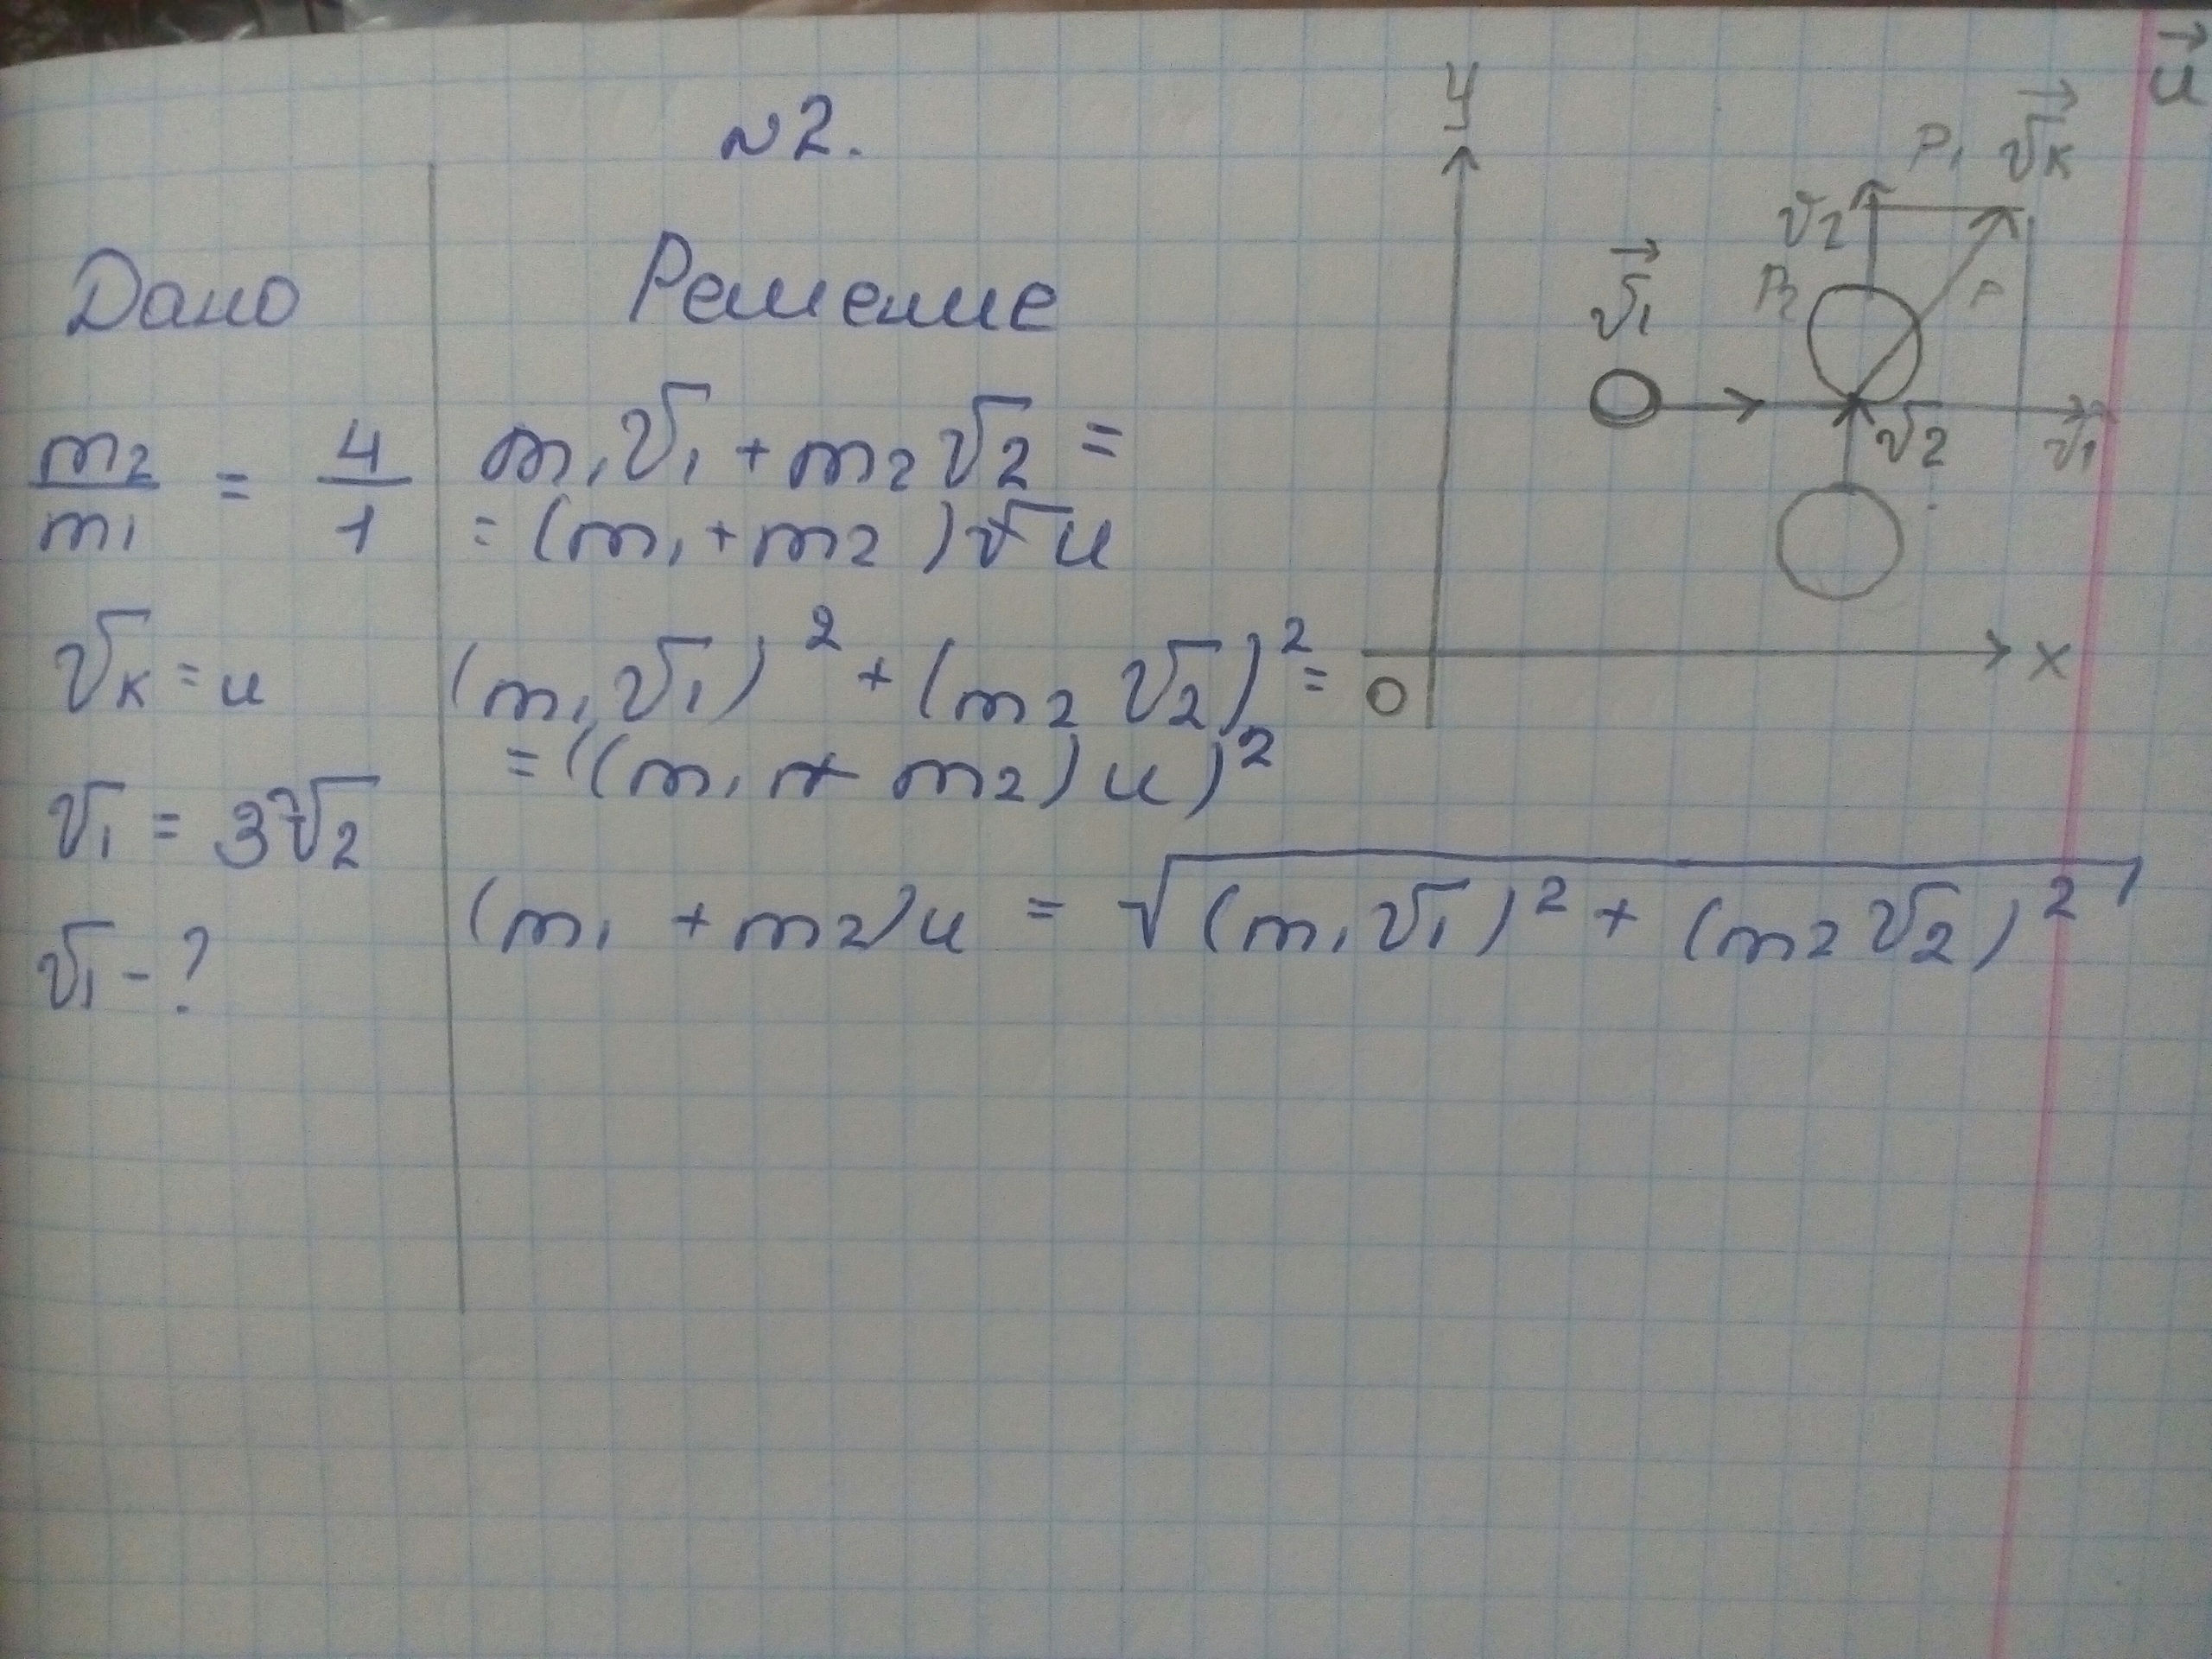 №2.
Дано
m₂/m₁ = 4/1
v_к = u
v₁ = 3v₂
v₁ - ?
Решение
m₁v₁ + m₂v₂ =
= (m₁ + m₂)u
(m₁v₁)² + (m₂v₂)² =
= ((m₁ + m₂)u)²
(m₁ + m₂)u = √((m₁v₁)² + (m₂v₂)²)
y
u⃗
P₁ v⃗к
v₂
v⃗₁
P₂
P
v₂
v₁
x
0